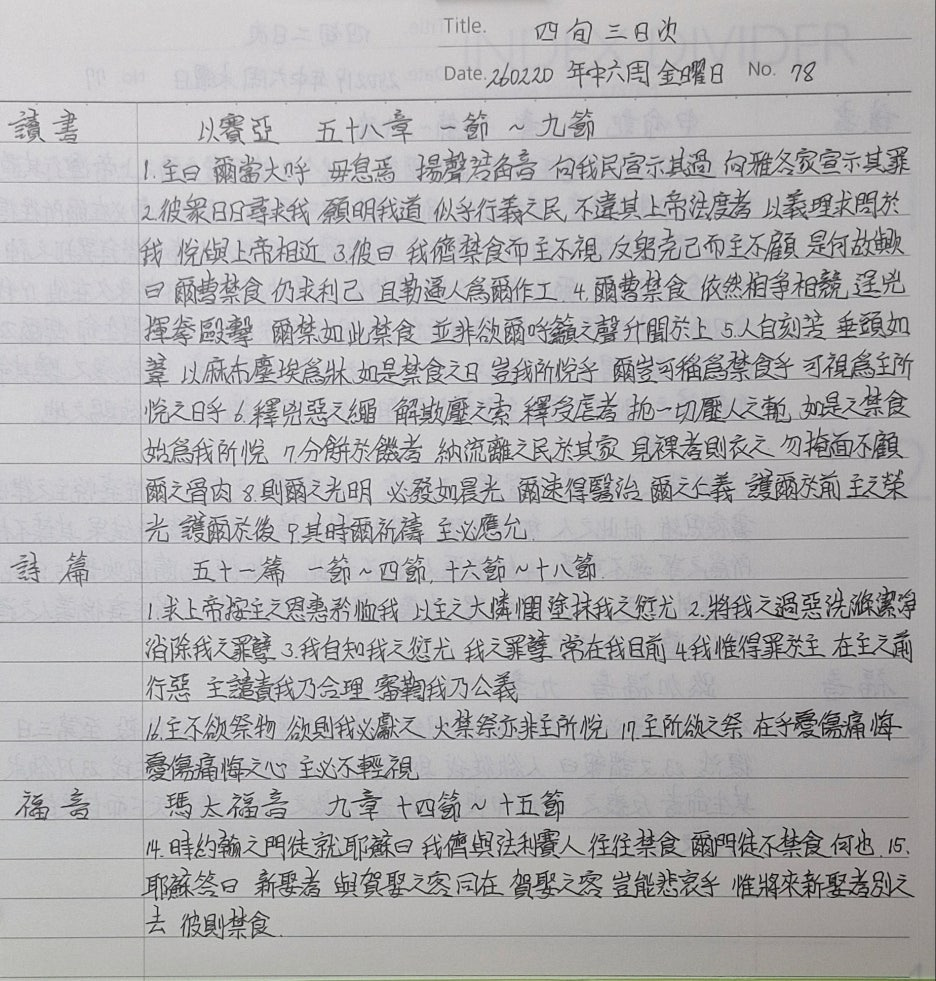 Title. 四旬三日次
Date. 260220 年中六周 金曜日 No. 78
讀書 以賽亞 五十八章 一節～九節
1.主曰 爾當大呼 毋息焉 揚聲若角音 向我民宣示其過 向雅各家宣示其罪
2.彼衆日日尋求我 願明我道 似乎行義之民 不違其上帝法度者 以義理求問於
我 悅與上帝相近 3.彼曰 我儕禁食而主不視 反躬克己而主不顧 是何故歟
曰 爾曹禁食 仍求利己 且勒逼人爲爾作工 4.爾曹禁食 依然相爭相競 逞兇
揮拳毆擊 爾禁如此禁食 並非欲爾呼籲之聲升聞於上 5.人自刻苦 垂頭如
葦 以麻布塵埃爲牀 如是禁食之日 豈我所悅乎 爾豈可稱爲禁食乎 可視爲主所
悅之日乎 6.釋兇惡之繩 解欺壓之索 釋受虐者 扼一切壓人之軛 如是之禁食
始爲我所悅 7.分餅於饑者 納流離之民於其家 見裸者則衣之 勿掩面不顧
爾之骨肉 8.則爾之光明 必發如晨光 爾速得醫治 爾之仁義 護爾於前 主之榮
光 護爾於後 9.其時爾祈禱 主必應允
詩篇 五十一篇 一節～四節, 十六節～十八節.
1.求上帝按主之恩惠矜恤我 以主之大憐憫塗抹我之愆尤 2.將我之過惡洗滌潔淨
消除我之罪孽 3.我自知我之愆尤 我之罪孽 常在我目前 4.我惟得罪於主 在主之前
行惡 主譴責我乃合理 審鞫我乃公義
16.主不欲祭物 欲則我必獻之 火禁祭亦非主所悅 17.主所欲之祭 在乎憂傷痛悔
憂傷痛悔之心 主必不輕視
福音 瑪太福音 九章 十四節～十五節
14.時約翰之門徒就耶穌曰 我儕與法利賽人 往往禁食 爾門徒不禁食 何也. 15.
耶穌答曰 新娶者 與賀娶之客同在 賀娶之客 豈能悲哀乎 惟將來新娶者別之
去 彼則禁食.